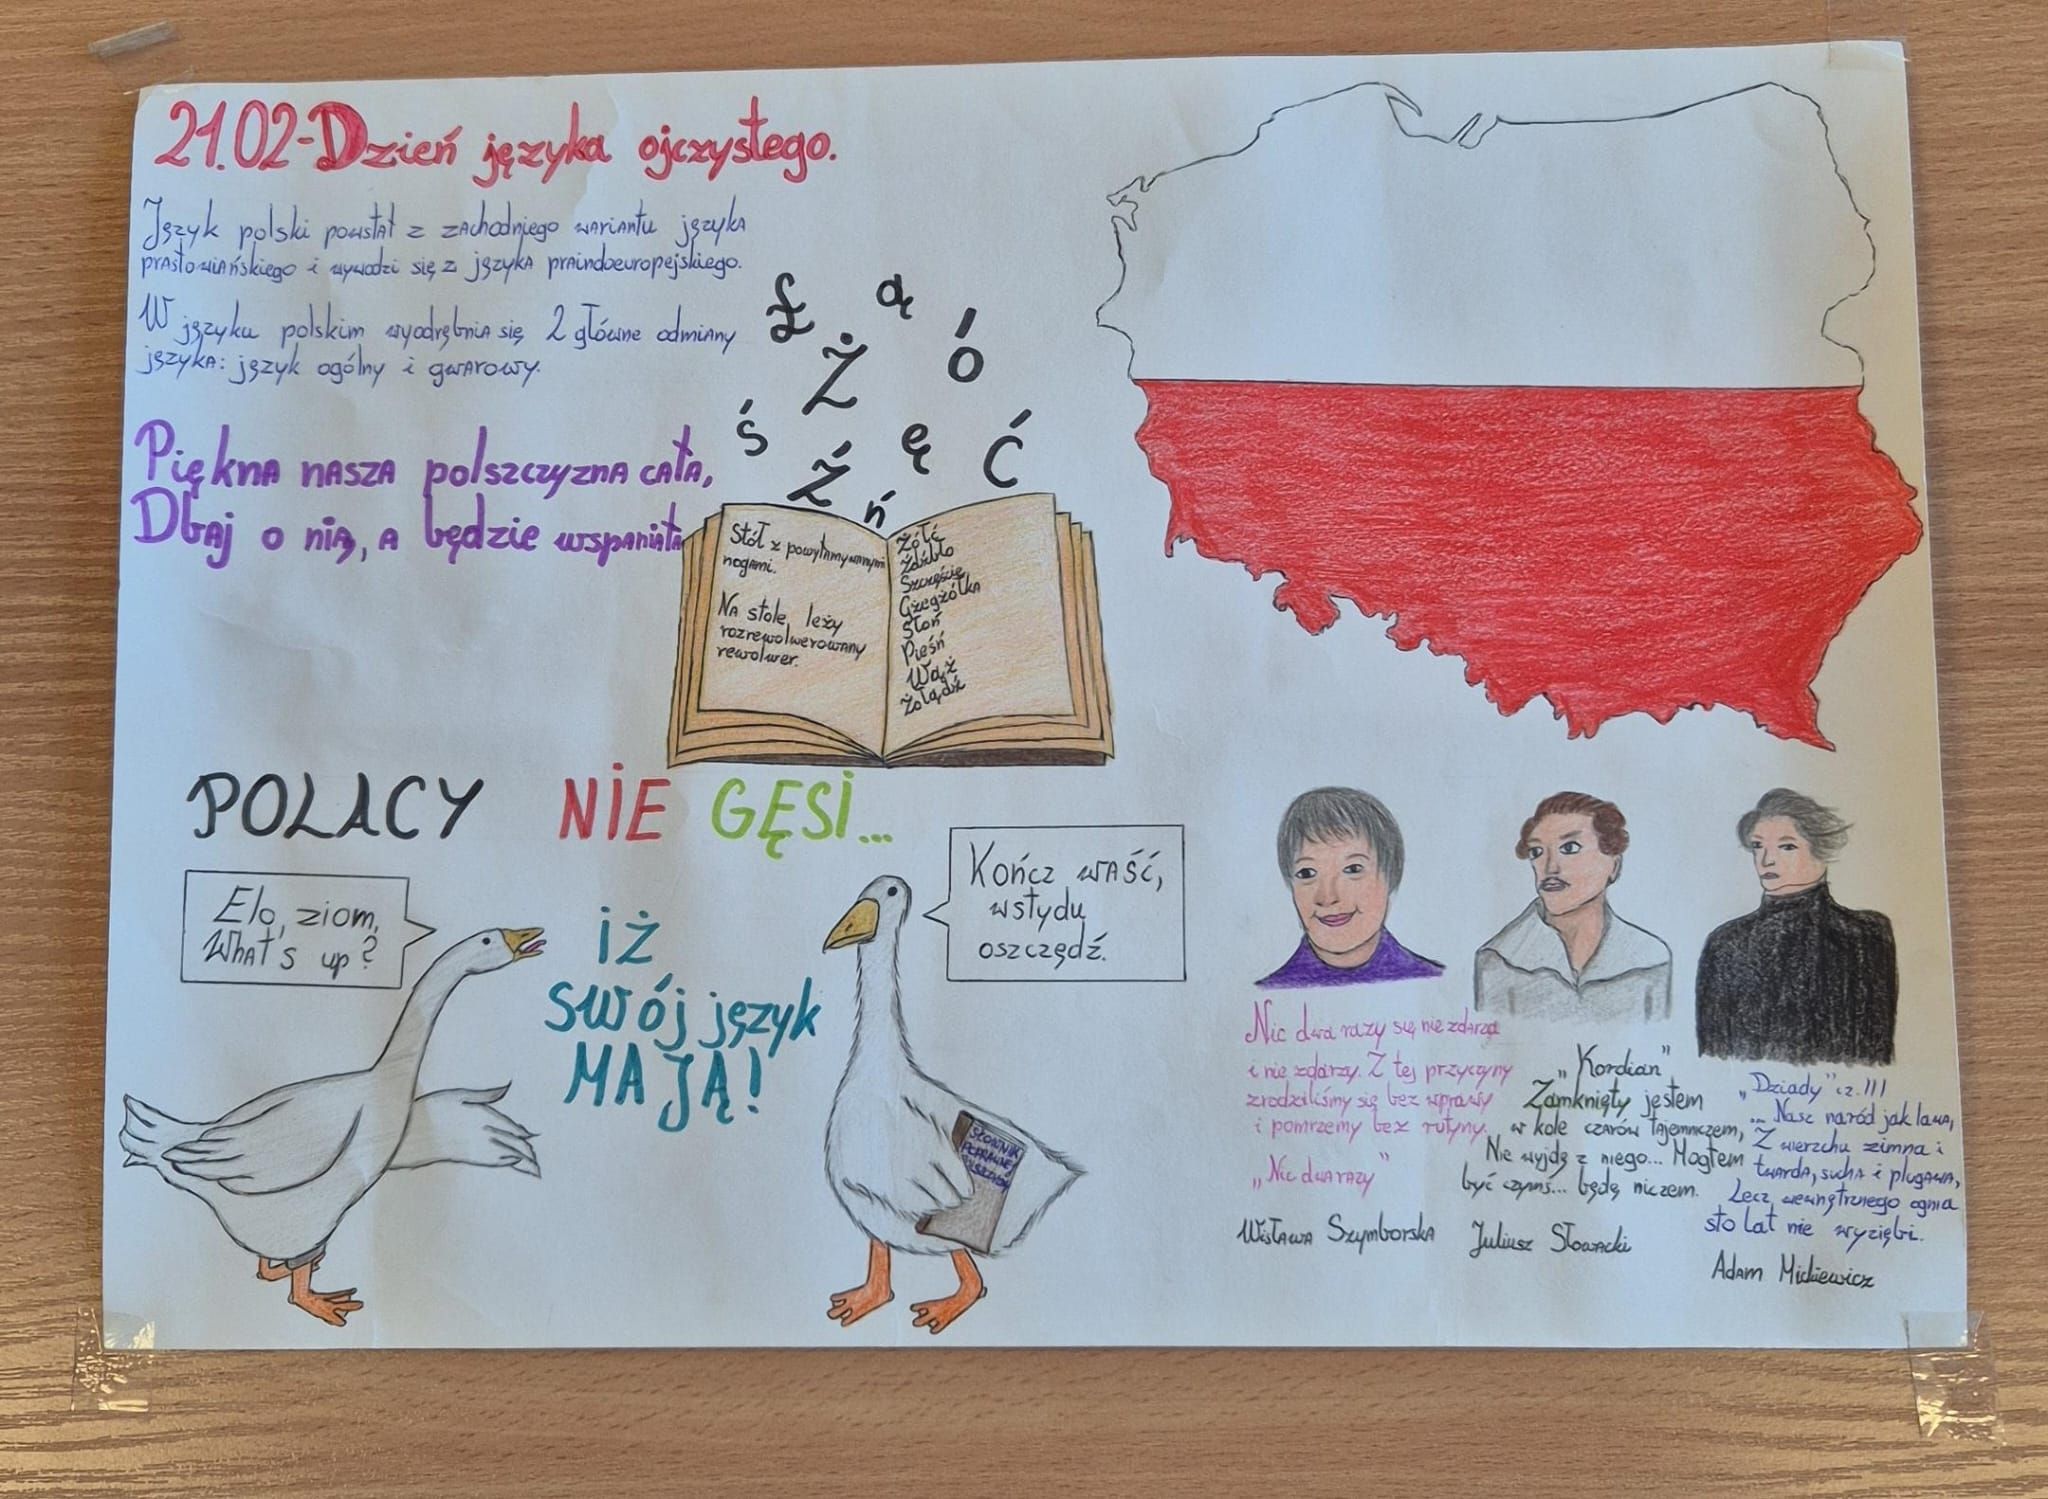 21.02-Dzień języka ojczystego.
Język polski powstał z zachodniego wariantu języka
prasłowiańskiego i wywodzi się z języka praindoeuropejskiego.
W języku polskim wyodrębnia się 2 główne odmiany
języka: język ogólny i gwarowy.
Piękna nasza polszczyzna cała,
Dbaj o nią, a będzie wspaniała
Ł ą
Ż ó
ś ę Ć
Ź ń
Stół z powyłamywanymi
nogami.
Na stole leży
rozrewolwerowany
rewolwer.
Żółć
Źdźbło
Szczęście
Gżegżółka
Słoń
Pieśń
Wąż
Żołądź
POLACY NIE GĘSI...
iż
swój język
MAJĄ!
Elo, ziom,
What's up?
Kończ waść,
wstydu
oszczędź.
SŁOWNIK
POPRAWNEJ
POLSZCZYZNY
Nic dwa razy się nie zdarza
i nie zdarzy. Z tej przyczyny
zrodziliśmy się bez wprawy
i pomrzemy bez rutyny.
"Nic dwa razy"
Wisława Szymborska
"Kordian"
Zamknięty jestem
w kole czarów tajemniczem,
Nie wyjdę z niego... Mogłem
być czymś... będę niczem.
Juliusz Słowacki
"Dziady" cz. III
... Nasz naród jak lawa,
Z wierzchu zimna i
twarda, sucha i plugawa,
Lecz wewnętrznego ognia
sto lat nie wyziębi.
Adam Mickiewicz